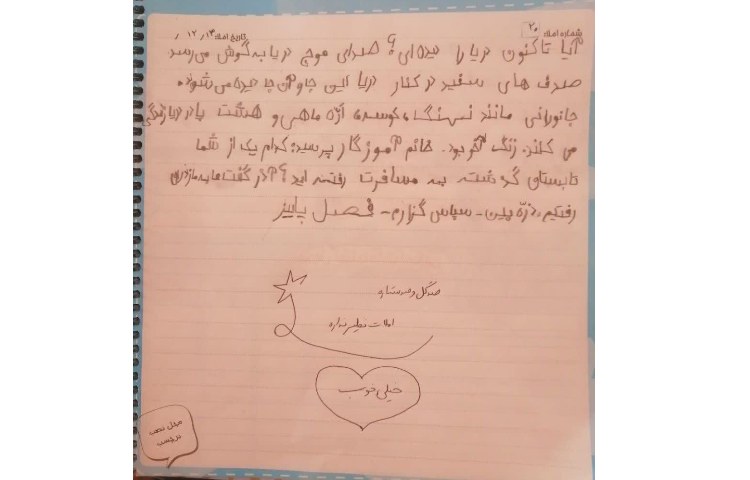 شماره املا ۲۰ تاریخ املا ۱۴/ ۱۲/ /
آیا تاکنون دریا را دیده ای؟ صدای موج دریا به گوش می رسد
صدف های سفید در کنار دریا این جا و آن جا دیده می شوند.
جانورانی مانند نهنگ، کوسه، ارّه ماهی و هشت پا در دریا زندگی
می کنند. زنگ آخر بود. خانم آموزگار پرسید: کدام یک از شما
تابستان گذشته به مسافرت رفته اید؟ آذر گفت ما به مازندران
رفتیم. ذرّه بین - سپاس گزارم - فصل پاییز
گل
املات نداره
خیلی خوب